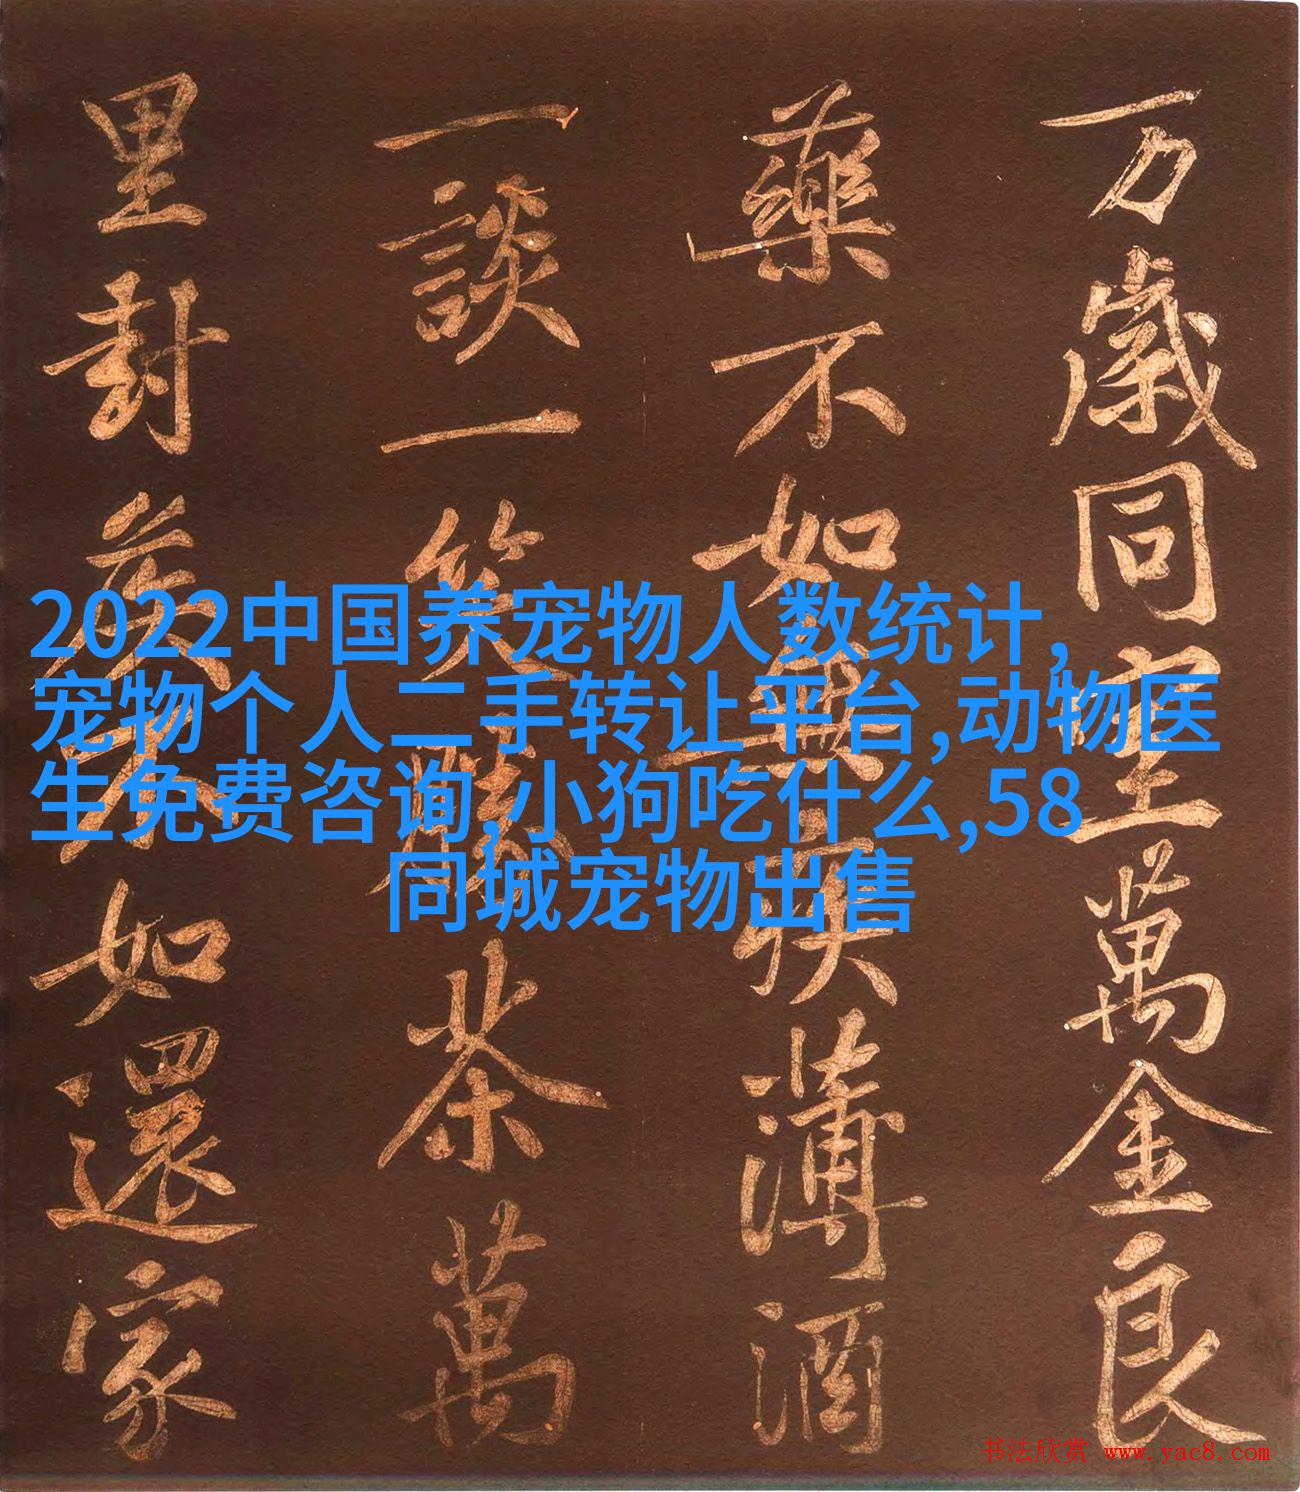 万歲同室萬金良
藥不如無疾薄酒
一談一笑勝茶萬
里封侯不如還家
2022中国养宠物人数统计,
宠物个人二手转让平台,动物医
生免费咨询,小狗吃什么,58
同城宠物出售
书法欣赏 www.yac8.com